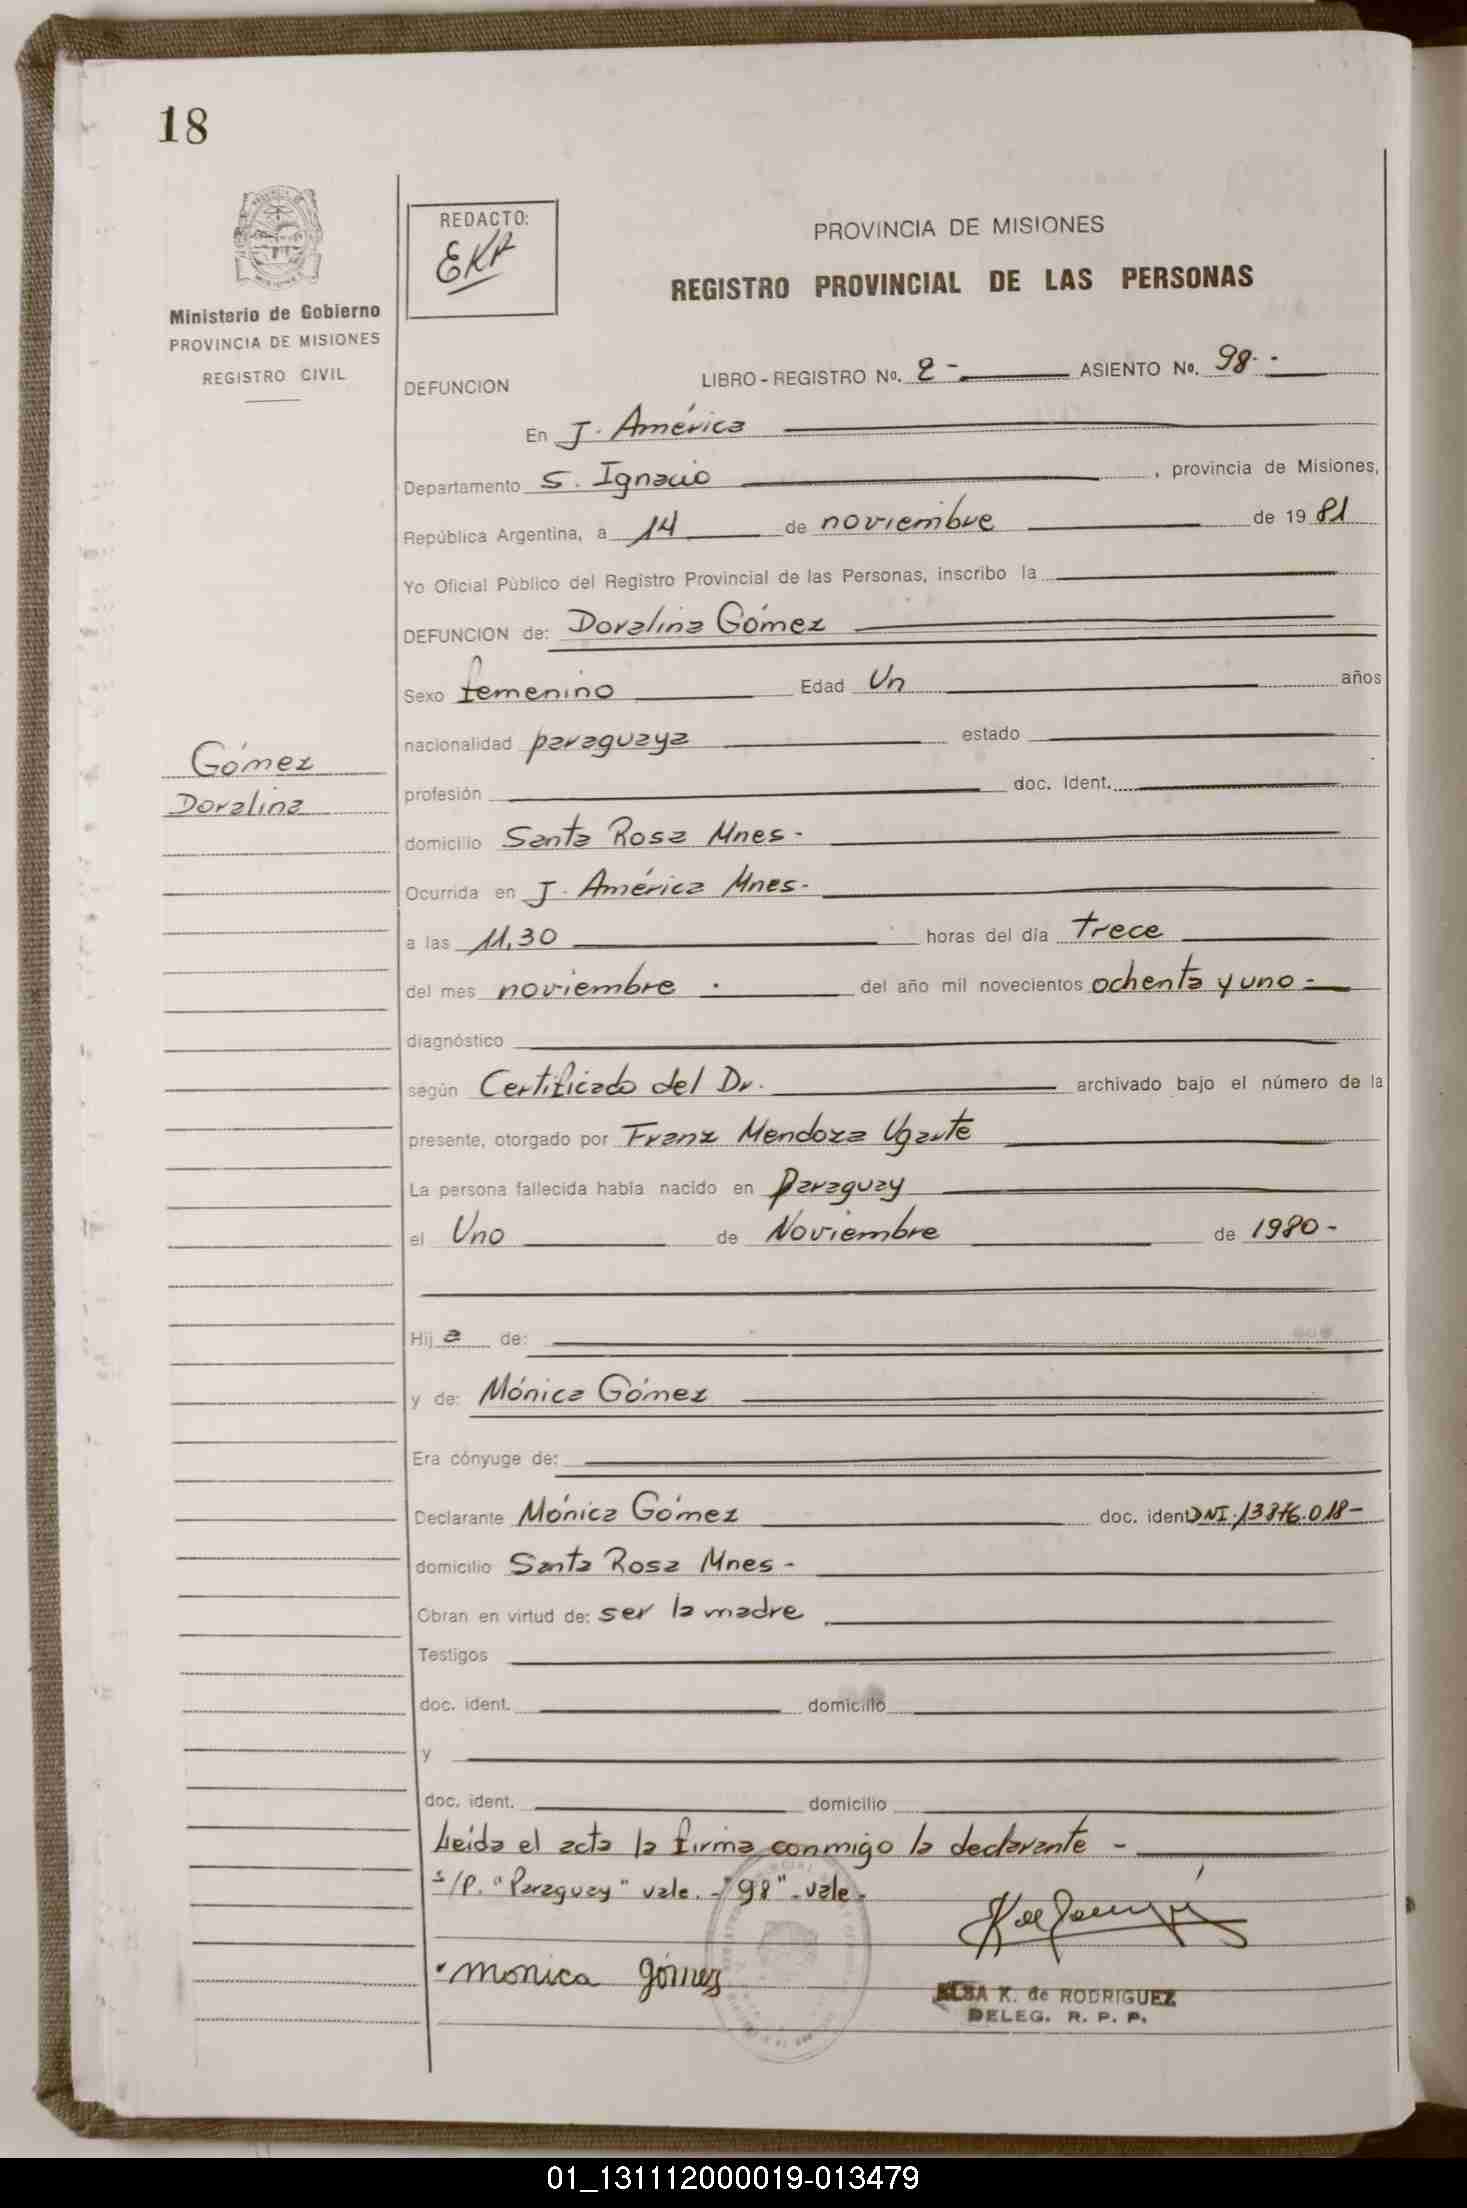 18
Ministerio de Gobierno
PROVINCIA DE MISIONES
REGISTRO CIVIL
Gómez
Doralina
REDACTO:
EKR
PROVINCIA DE MISIONES
REGISTRO PROVINCIAL DE LAS PERSONAS
DEFUNCION LIBRO - REGISTRO No. 2 - ASIENTO No. 98 -
En J. América
Departamento S. Ignacio , provincia de Misiones,
República Argentina, a 14 de noviembre de 19 81
Yo Oficial Público del Registro Provincial de las Personas, inscribo la
DEFUNCION de: Doralina Gómez
Sexo femenino Edad Un años
nacionalidad paraguaya estado
profesión doc. Ident.
domicilio Santa Rosa Mnes -
Ocurrida en J. América Mnes -
a las 11,30 horas del día trece
del mes noviembre . del año mil novecientos ochenta y uno -
diagnóstico
según Certificado del Dr. archivado bajo el número de la
presente, otorgado por Franz Mendoza Ugarte
La persona fallecida había nacido en Paraguay
el Uno de Noviembre de 1980 -
Hij a de:
y de: Mónica Gómez
Era cónyuge de:
Declarante Mónica Gómez doc. ident. DNI. 13876.018 -
domicilio Santa Rosa Mnes -
Obran en virtud de: ser la madre
Testigos
doc. ident. domicilio
y
doc. ident. domicilio
Leída el acta la firma conmigo la declarante -
s/p. "Paraguay" vale. - "98" - vale -
monica gómez
ELSA K. de RODRIGUEZ
DELEG. R. P. P.
01_131112000019-013479